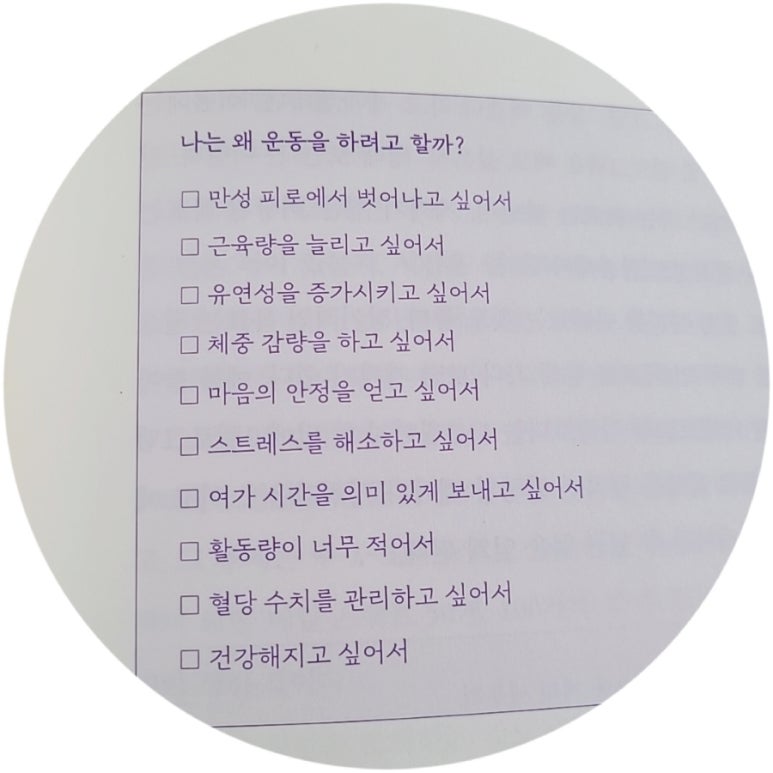 나는 왜 운동을 하려고 할까?
□ 만성 피로에서 벗어나고 싶어서
□ 근육량을 늘리고 싶어서
□ 유연성을 증가시키고 싶어서
□ 체중 감량을 하고 싶어서
□ 마음의 안정을 얻고 싶어서
□ 스트레스를 해소하고 싶어서
□ 여가 시간을 의미 있게 보내고 싶어서
□ 활동량이 너무 적어서
□ 혈당 수치를 관리하고 싶어서
□ 건강해지고 싶어서